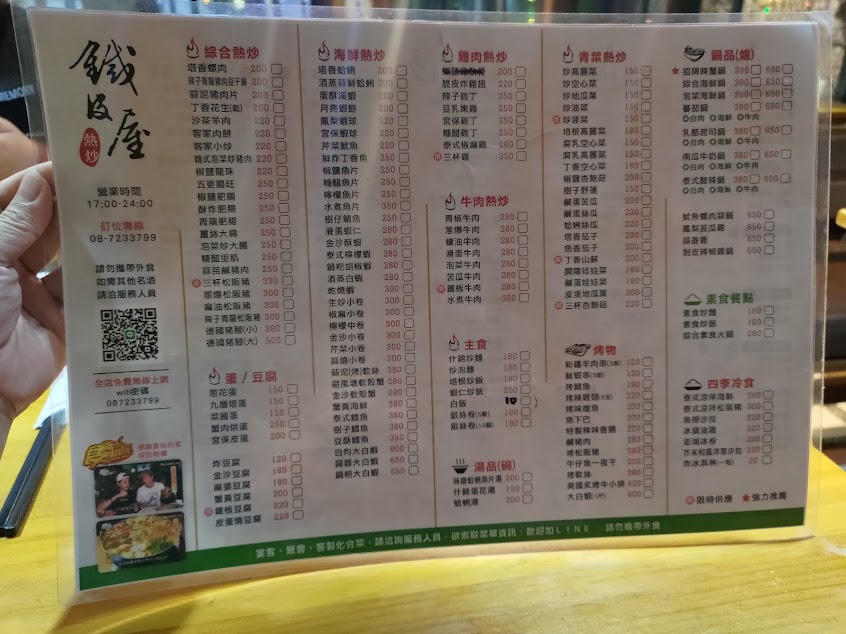 鐵皮屋
熱炒
營業時間
17:00-24:00
訂位專線
08-7233799
請勿攜帶外食
如需其他名酒
請洽服務人員
全店免費無線上網
wifi密碼
087233799
綜合熱炒
塔香螺肉 200
辣子青龍豬肉豆干鍋 200
蒜泥豬肉片 200
丁香花生(乾) 200
沙茶羊肉 220
客家肉餅 220
客家小炒 220
韓式泡菜炒豬肉 220
椒鹽龍珠 220
五更腸旺 250
椒鹽肥腸 250
酥炸肥腸 250
青龍肥腸 250
薑絲大腸 250
泡菜炒大腸 250
糖醋里肌 250
蒜苗鹹豬肉 250
三杯松阪豬 320
蔥爆松阪豬 300
麻油松阪豬 300
辣子青龍松阪豬 300
德國豬腳(小) 280
德國豬腳(大) 500
蛋/豆腐
蔥花蛋 150
九層塔蛋 150
菜圃蛋 150
蟹肉烘蛋 200
宮保皮蛋 200
炸豆腐 120
金沙豆腐 200
麻婆豆腐 200
蟹黃豆腐 220
鐵板豆腐 220
皮蛋燒豆腐 220
海鮮熱炒
塔香蛤蜊 200
酒蒸蒜鮮蛤蜊 200
蛋酥溪蝦 200
月亮蝦餅 200
鳳梨蝦球 250
宮保蝦球 250
芹菜魷魚 250
鮮炸丁香魚 250
椒鹽魚片 250
糖醋魚片 250
檸檬魚片 250
水煮魚片 350
樹子鯛魚 250
滑蛋蝦仁 250
金沙酥蝦 280
泰式檸檬蝦 280
鍋粑胡椒蝦 280
酒蒸白蝦 280
乾燒蝦 280
生炒小卷 300
椒麻小卷 300
檸檬中卷 300
金沙小卷 300
芹菜小卷 300
蒜燒小卷 300
蒜泥(烤)軟絲 380
避風塘軟殼蟹 380
金沙軟殼蟹 380
蟹黃海鮮 380
泰式鱈魚 380
樹子鱈魚 380
豆酥鱈魚 380
白灼大白蝦 600
蒜蓉大白蝦 600
鍋粑大白蝦 650
雞肉熱炒
200
脆皮炸雞翅 200
辣子雞丁 200
豆乳嫩雞 200
宮保雞丁 200
糖醋雞丁 200
泰式椒麻雞 280
三杯雞 350
牛肉熱炒
青椒牛肉 280
蔥爆牛肉 280
蠔油牛肉 280
滑蛋牛肉 280
泡菜牛肉 280
苦瓜牛肉 280
鐵板牛肉 280
水煮牛肉 380
主食
什錦炒麵 180
炒泡麵 180
培根炒飯 180
蝦仁炒飯 250
白飯 10
銀絲卷(5顆) 100
銀絲卷(10顆) 180
湯品(碗)
味噌蛤蜊魚片湯 200
什錦蛋花湯 200
蛤蜊湯 200
青菜熱炒
炒高麗菜 150
炒空心菜 150
炒地瓜葉 150
炒油菜 150
炒菠菜 150
培根高麗菜 180
腐乳空心菜 180
腐乳高麗菜 180
丁香空心菜 180
椒鹽杏鮑菇 200
樹子野蓮 200
鹹蛋苦瓜 200
鹹蛋絲瓜 200
蛤蜊絲瓜 200
塔香茄子 200
魚香茄子 200
丁香山蘇 200
開陽娃娃菜 180
鹹蛋娃娃菜 180
皮蛋地瓜葉 200
三杯杏鮑菇 220
烤物
新疆羊肉串(3串) 120
鮮蝦串(3串) 120
烤鯖魚 180
烤辣雞翅(6支) 220
烤味噌魚 200
魚下巴 200
特製辣味香腸 220
鹹豬肉 280
烤松阪豬 380
午仔魚一夜干 250
烤軟絲 380
美國炙烤牛小排 420
大白蝦(1斤) 600
鍋品(爐)
招牌辣蟹鍋 380 650
綜合海鮮鍋 380 650
泡菜海鮮鍋 380 650
番茄鍋 380 650
白肉 海鮮 牛肉
乳酪起司鍋 380 650
白肉 海鮮 牛肉
南瓜牛奶鍋 380 650
白肉 海鮮 牛肉
泰式酸辣鍋 380 650
白肉 海鮮 牛肉
魷魚螺肉蒜鍋 650
鳳梨苦瓜雞 650
蒜香雞 650
剝皮辣椒雞鍋 650
素食餐點
素食炒麵 180
素食炒飯 180
綜合素食火鍋 280
四季冷食
泰式涼伴海鮮 280
泰式涼拌松阪豬 300
魚卵沙拉 200
冰鎮滷雞 200
澎湖冰卷 200
芥末和風洋蔥沙拉 100
炸冰淇淋(一粒) 30
限時供應 強力推薦
宴客、聚會、客製化合菜,請洽詢服務人員,欲索取菜單資訊,歡迎加LINE 請勿攜帶外食